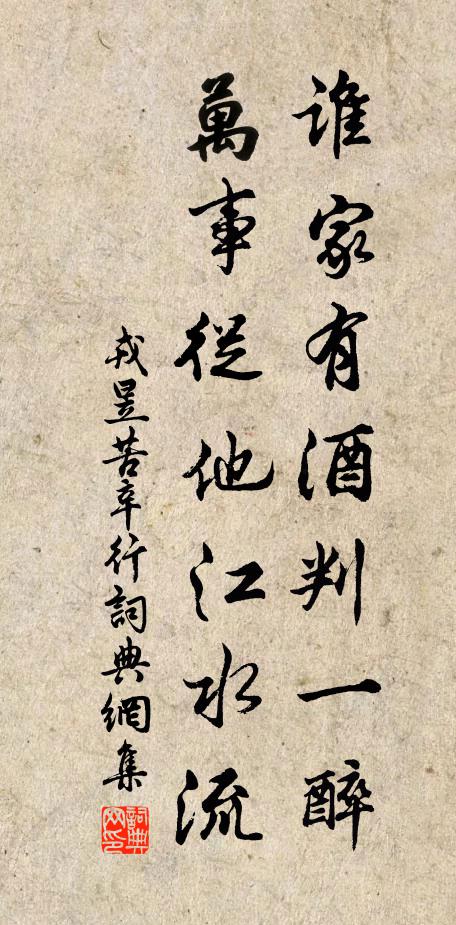 谁家有酒判一醉
萬事從他江水流
戎昱苦辛行詞典網集
詞典網印